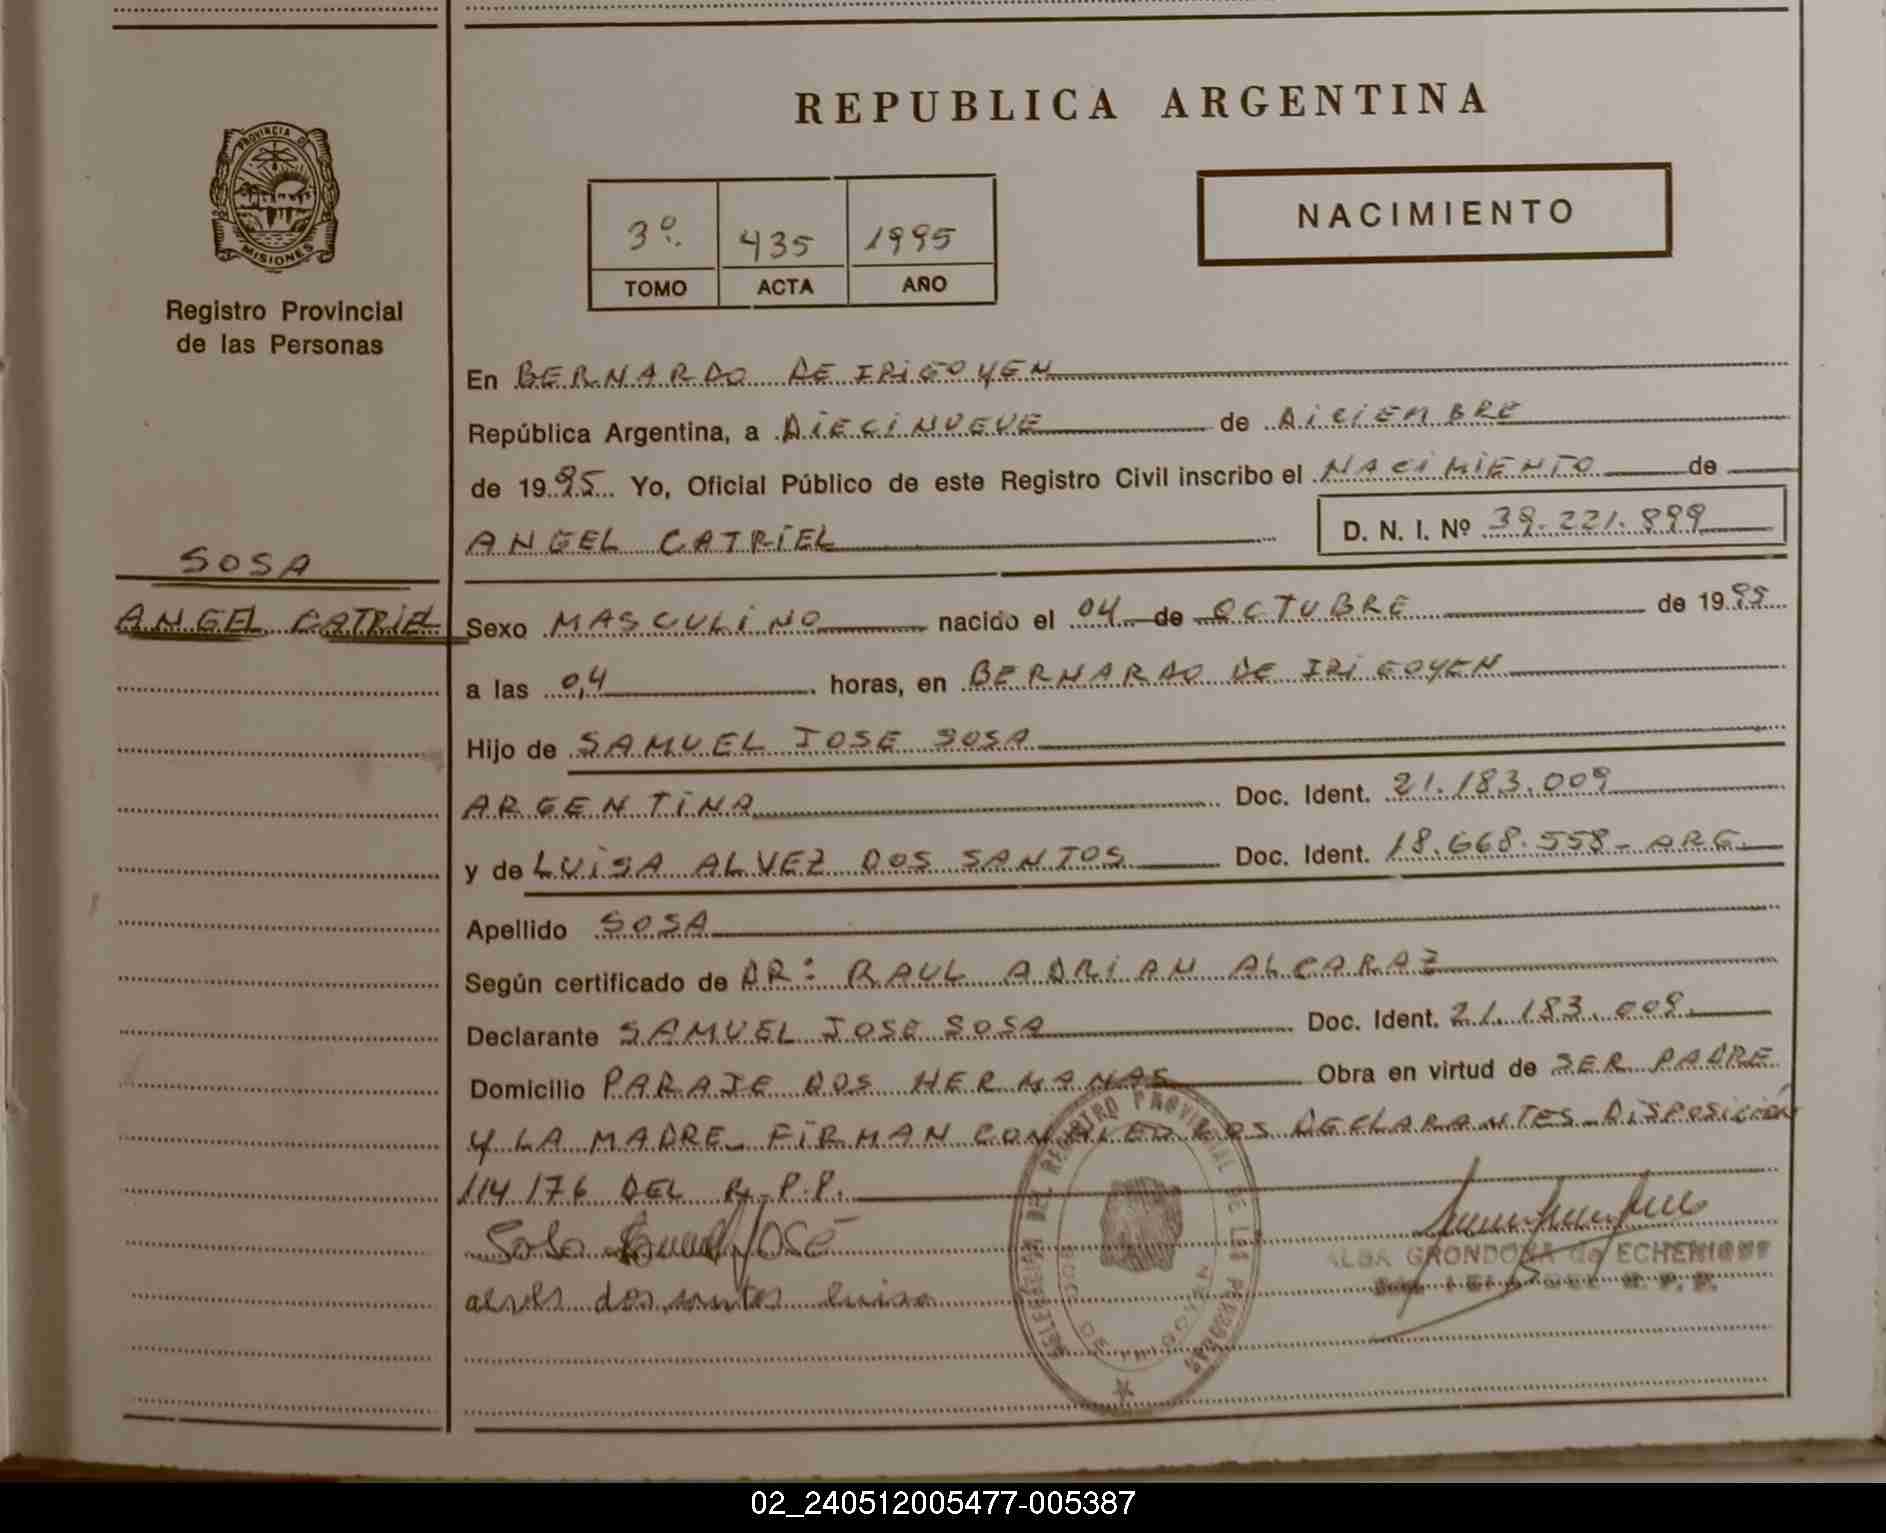 REPUBLICA ARGENTINA
PROVINCIA DE
MISIONES
Registro Provincial
de las Personas
3º. 435 1995
TOMO ACTA AÑO
NACIMIENTO
En BERNARDO DE IRIGOYEN
República Argentina, a DIECINUEVE de DICIEMBRE
de 1995 Yo, Oficial Público de este Registro Civil inscribo el NACIMIENTO de
ANGEL CATRIEL D. N. I. Nº 39.221.899
SOSA
ANGEL CATRIEL
Sexo MASCULINO nacido el 04 de OCTUBRE de 1995
a las 0,4 horas, en BERNARDO DE IRIGOYEN
Hijo de SAMUEL JOSE SOSA
ARGENTINA Doc. Ident. 21.183.009
y de LUISA ALVEZ DOS SANTOS Doc. Ident. 18.668.558- ARG.
Apellido SOSA
Según certificado de DR: RAUL ADRIAN ALCARAZ
Declarante SAMUEL JOSE SOSA Doc. Ident. 21.183.009
Domicilio PARAJE DOS HERMANAS Obra en virtud de SER PADRE
Y LA MADRE FIRMAN COMO LEO LOS DECLARANTES DISPOSICIÓN
114/76 DEL R.P.P.
Sosa Samuel José
alves dos santos luisa
DELEGACION DEL REGISTRO PROVINCIAL DE LAS PERSONAS
ALBA GRONDONA de ECHENIQUE
R. P. P.
02_240512005477-005387